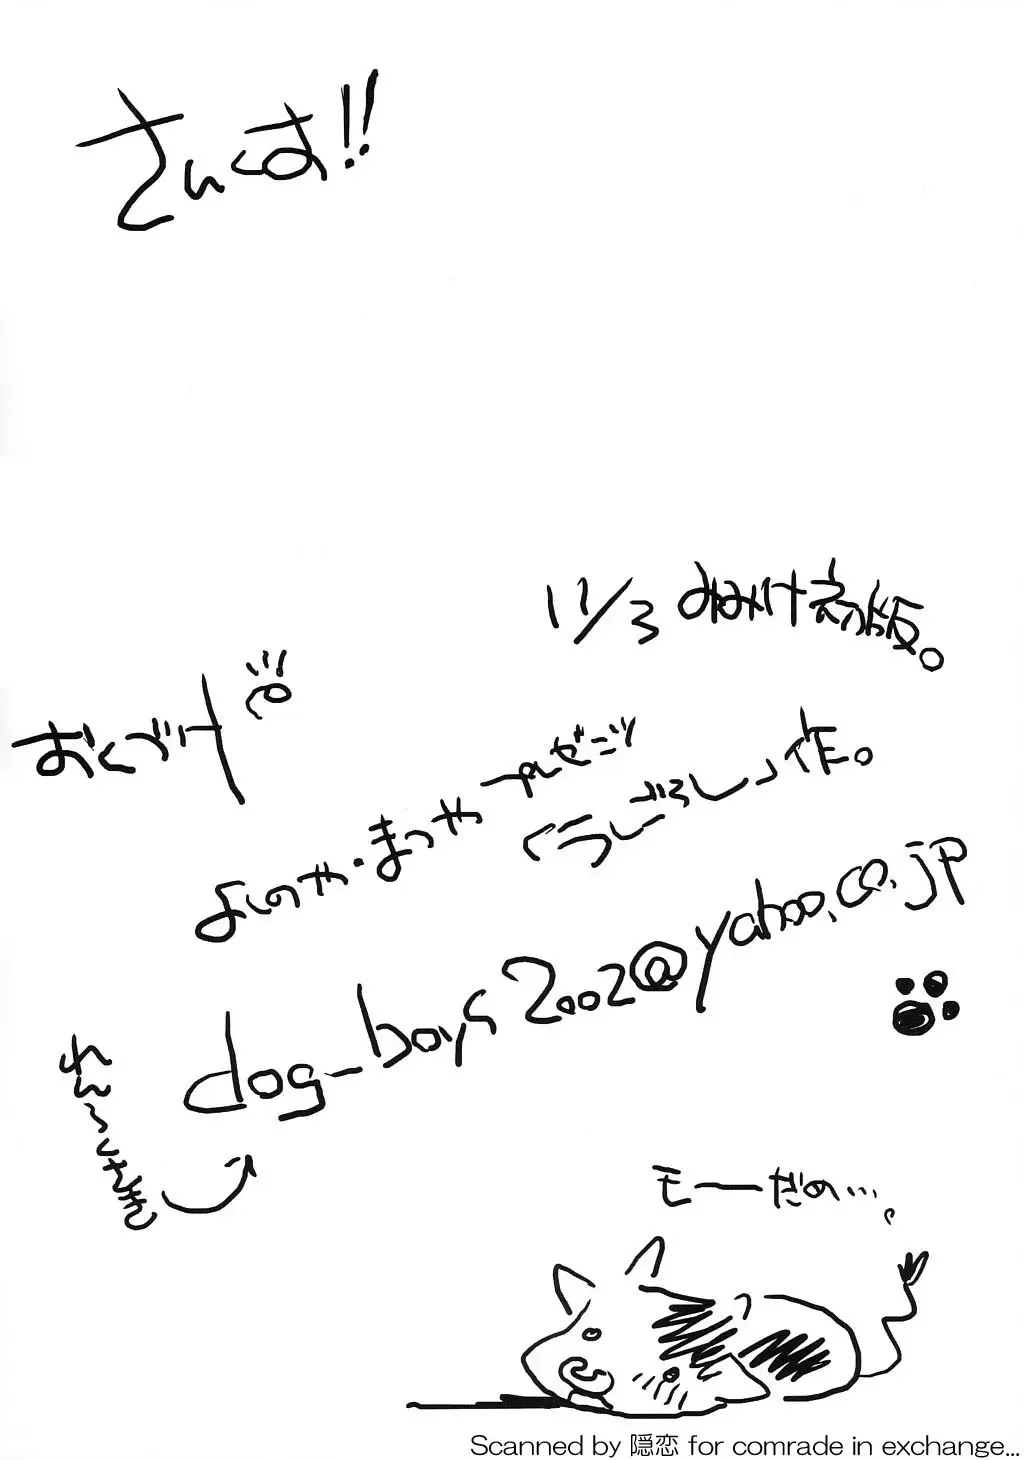 さんくす!!
11/3 みみけ初版。
おくづけ
よしのや・まつや
作。
dog-boys2002@yahoo.co.jp
れんらくさき
モーだめ…。
Scanned by 隠恋 for comrade in exchange...